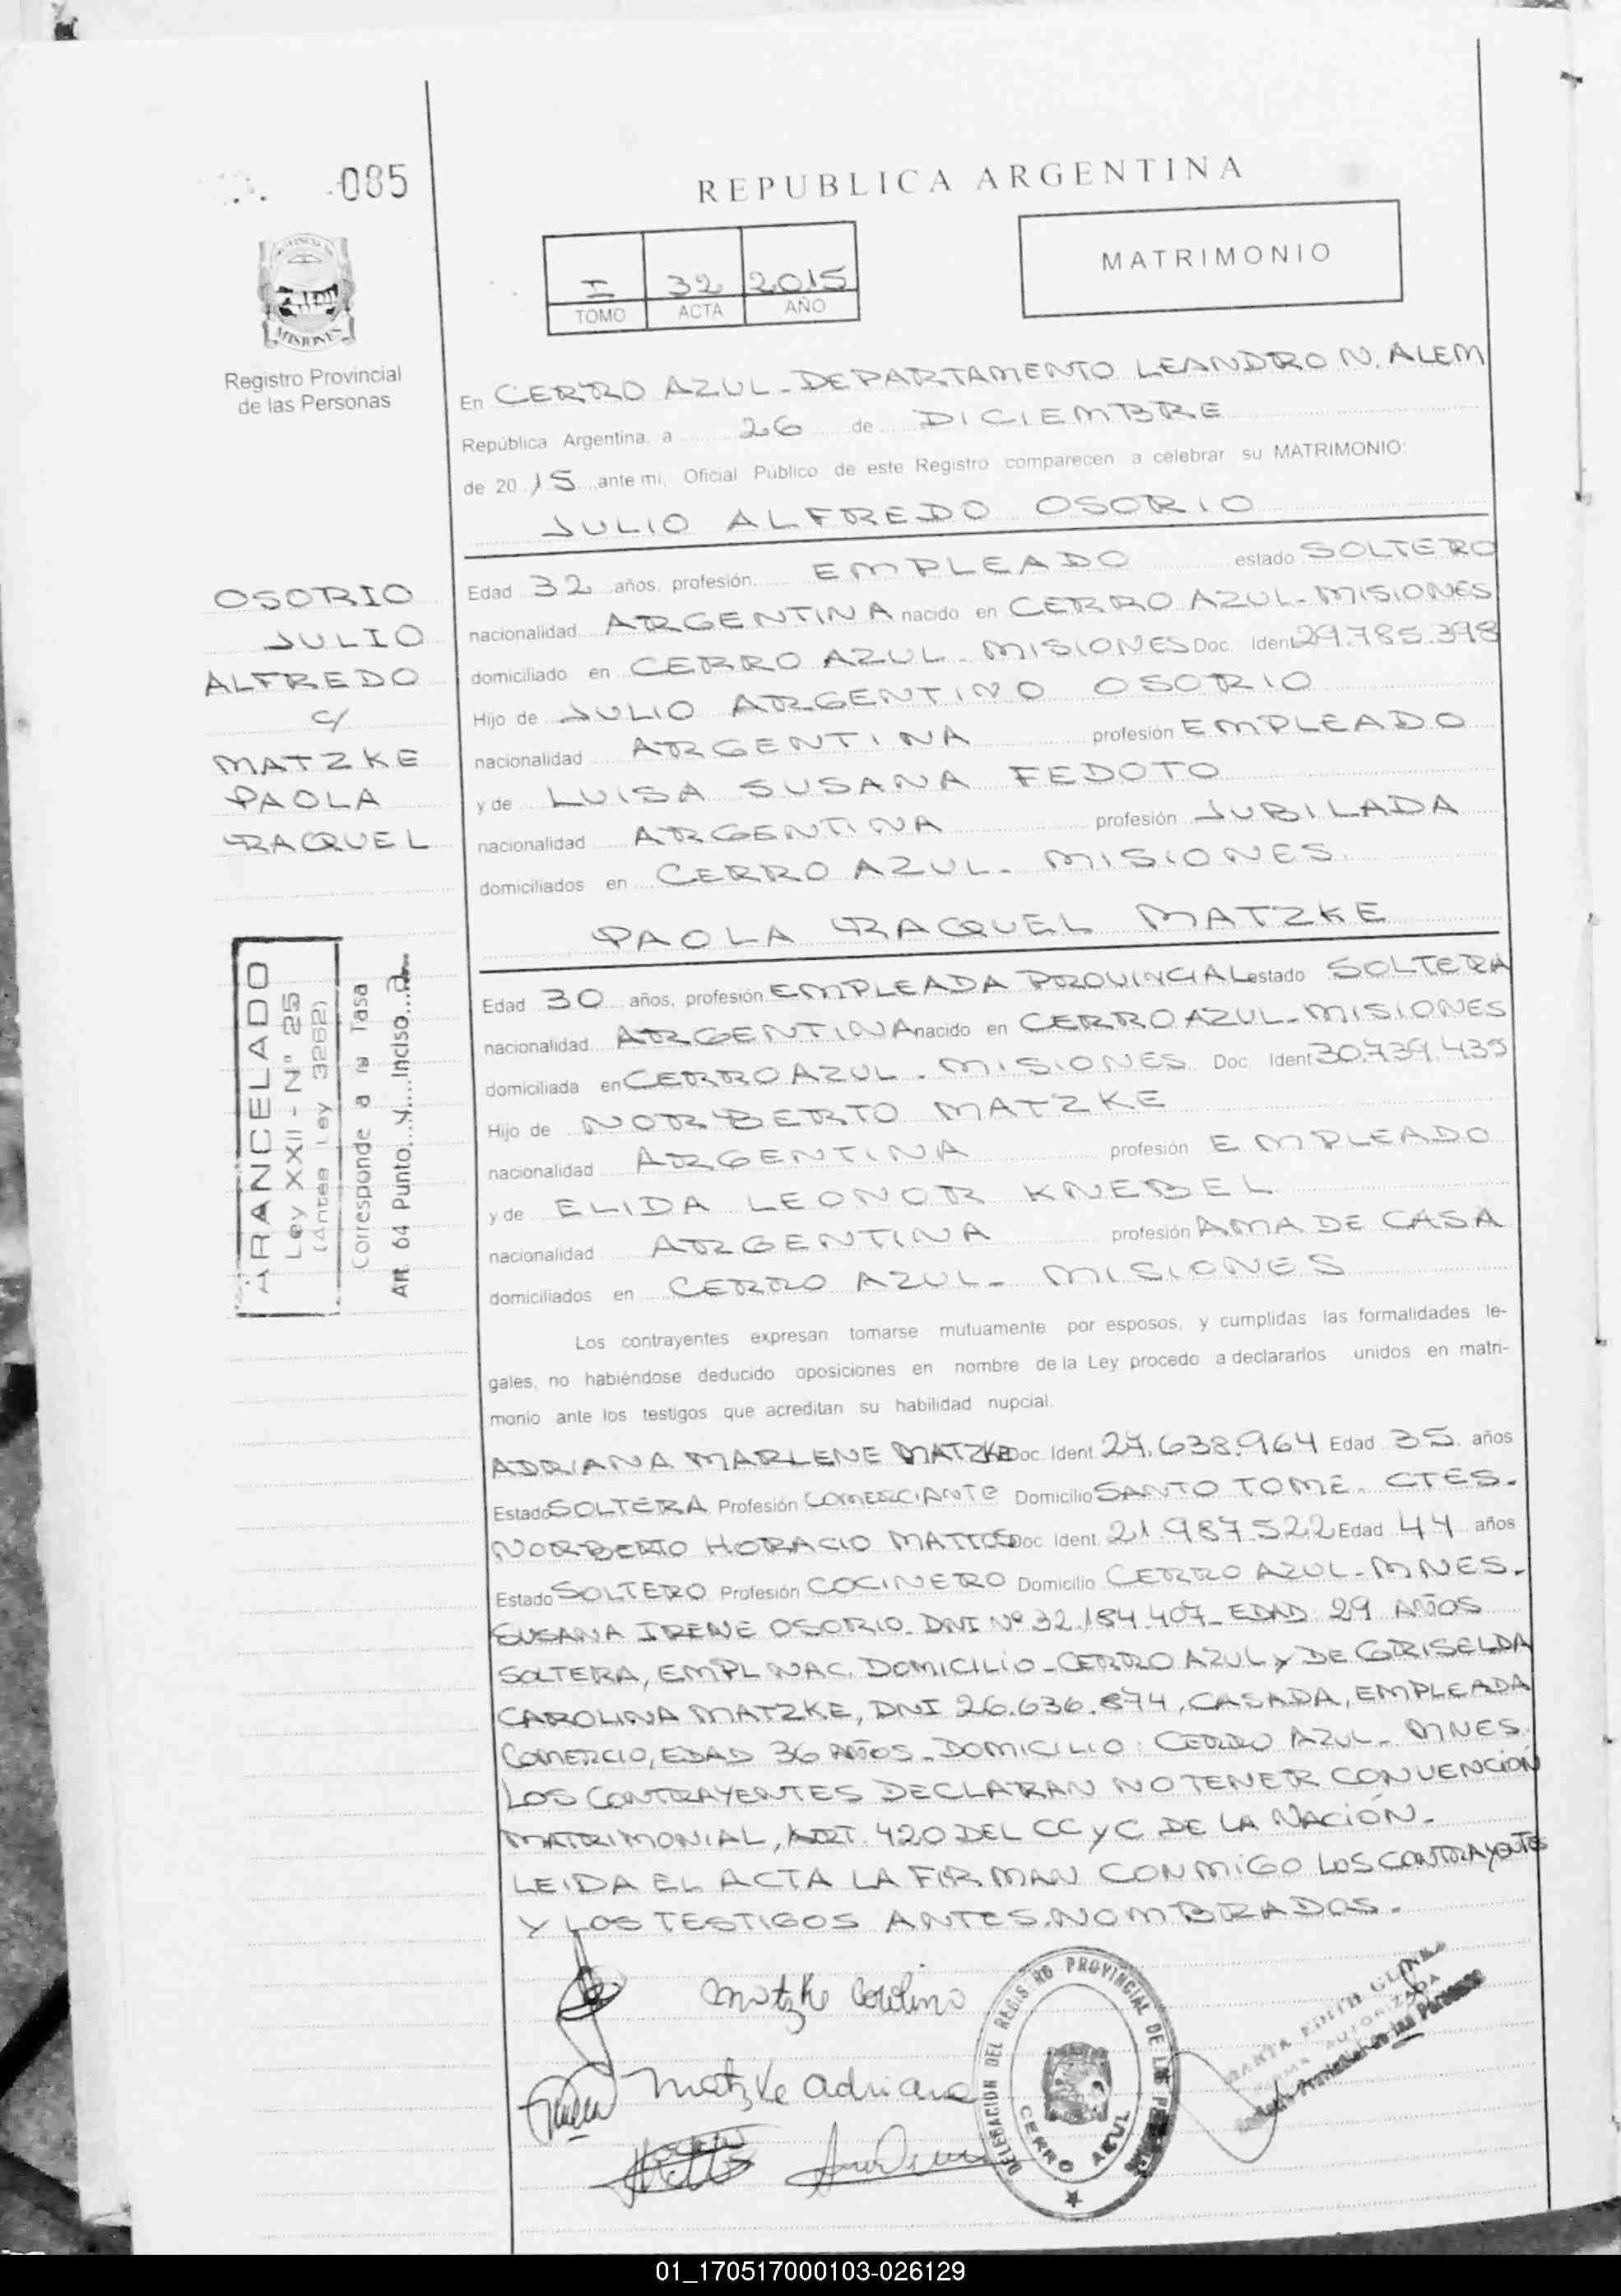 085
REPUBLICA ARGENTINA
I 32 2015
TOMO ACTA AÑO
MATRIMONIO
PROVINCIA DE
MISIONES
Registro Provincial
de las Personas
En CERRO AZUL - DEPARTAMENTO LEANDRO N. ALEM
República Argentina, a 26 de DICIEMBRE
de 20 15 ante mi, Oficial Público de este Registro comparecen a celebrar su MATRIMONIO:
JULIO ALFREDO OSORIO
OSORIO
JULIO
ALFREDO
c/
MATZKE
PAOLA
RAQUEL
Edad 32 años, profesión EMPLEADO estado SOLTERO
nacionalidad ARGENTINA nacido en CERRO AZUL - MISIONES
domiciliado en CERRO AZUL - MISIONES Doc. Ident 29.785.398
Hijo de JULIO ARGENTINO OSORIO
nacionalidad ARGENTINA profesión EMPLEADO
y de LUISA SUSANA FEDOTO
nacionalidad ARGENTINA profesión JUBILADA
domiciliados en CERRO AZUL - MISIONES.
PAOLA RAQUEL MATZKE
ARANCELADO
Ley XXII - Nº 25
(Antes Ley 3262)
Corresponde a la Tasa
Art. 64 Punto 4 Inciso a
Edad 30 años, profesión EMPLEADA PROVINCIAL estado SOLTERA
nacionalidad ARGENTINA nacido en CERRO AZUL - MISIONES
domiciliada en CERRO AZUL - MISIONES Doc. Ident 30.739.435
Hijo de NORBERTO MATZKE
nacionalidad ARGENTINA profesión EMPLEADO
y de ELIDA LEONOR KNEBEL
nacionalidad ARGENTINA profesión AMA DE CASA
domiciliados en CERRO AZUL - MISIONES
Los contrayentes expresan tomarse mutuamente por esposos, y cumplidas las formalidades le-
gales, no habiéndose deducido oposiciones en nombre de la Ley procedo a declararlos unidos en matri-
monio ante los testigos que acreditan su habilidad nupcial.
ADRIANA MARLENE MATZKE Doc. Ident. 27.638.964 Edad 35 años
Estado SOLTERA Profesión COMERCIANTE Domicilio SANTO TOME. CTES.
NORBERTO HORACIO MATTOS Doc. Ident. 21.987.522 Edad 44 años
Estado SOLTERO Profesión COCINERO Domicilio CERRO AZUL - MNES.
SUSANA IRENE OSORIO - DNI Nº 32.184.407 - EDAD 29 AÑOS
SOLTERA, EMPL NAC. DOMICILIO - CERRO AZUL y DE GRISELDA
CAROLINA MATZKE, DNI 26.636.874, CASADA, EMPLEADA
COMERCIO, EDAD 36 AÑOS - DOMICILIO: CERRO AZUL - MNES.
LOS CONTRAYENTES DECLARAN NO TENER CONVENCIÓN
MATRIMONIAL, ART. 420 DEL CC y C DE LA NACIÓN.-
LEIDA EL ACTA LA FIRMAN CONMIGO LOS CONTRAYENTES
Y LOS TESTIGOS ANTES NOMBRADOS.
Matzke Carolina
Matzke Adriana
DELEGACION DEL REGISTRO PROVINCIAL DE LAS PERSONAS
CERRO AZUL
EDITH
AUTORIZADA
de las Personas
01_170517000103-026129